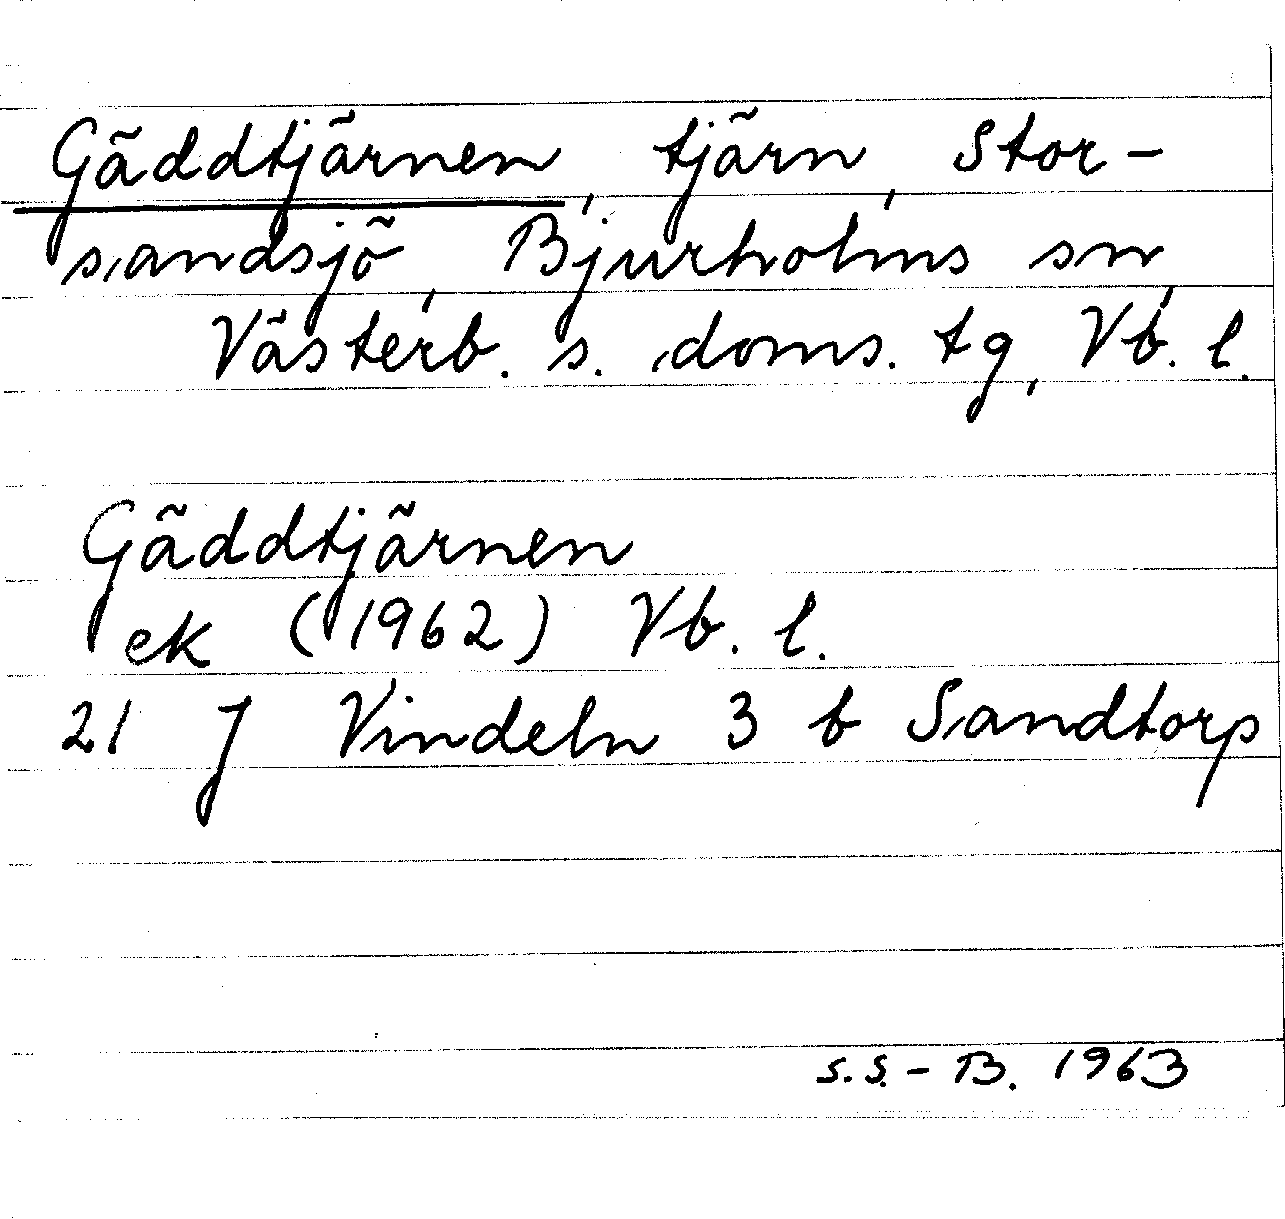 Gäddtjärnen, tjärn, Stor-
sandsjö, Bjurholms sn,
Västerb. s. doms. tg, Vb. l.
Gäddtjärnen
ek (1962) Vb. l.
21 J Vindeln 3 b Sandtorp
S.S.-B. 1963